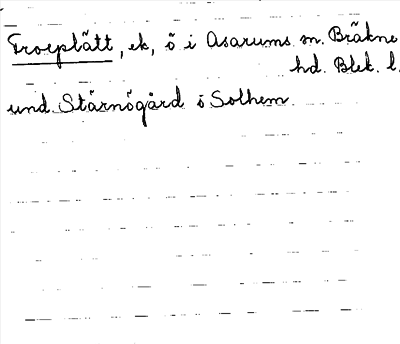 Froeplätt, ek, ö i Asarums sn. Bräkne
hd. Blek. l.
und. Stärnögård ö Solhem.